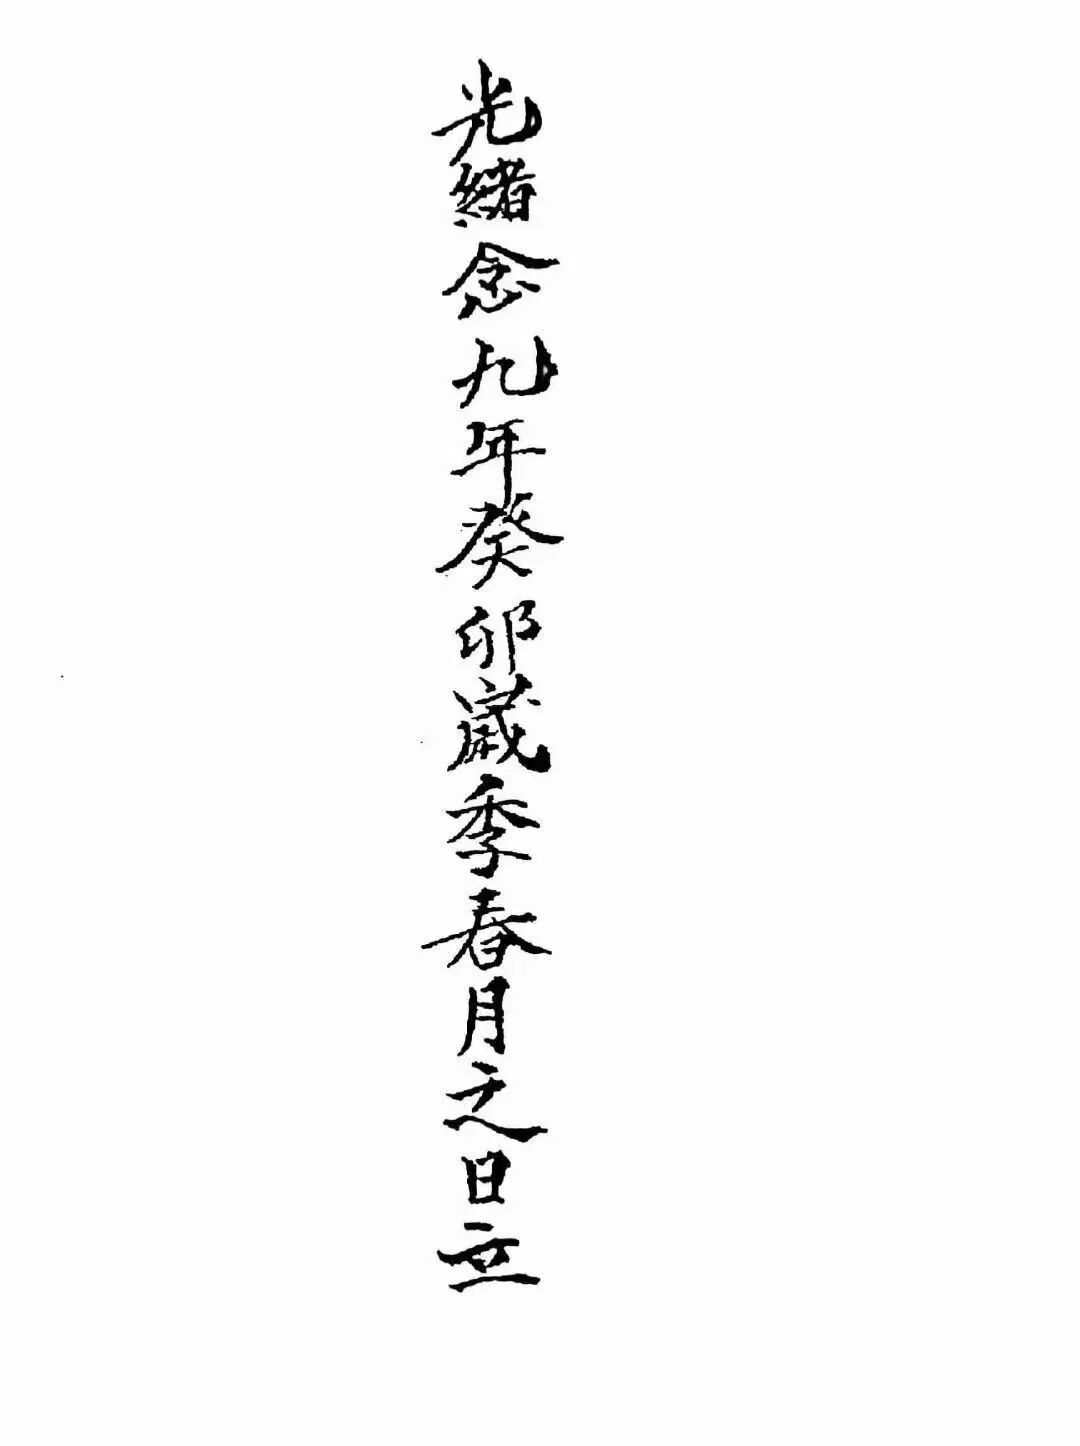 光緒念九年癸卯歲季春月之日立